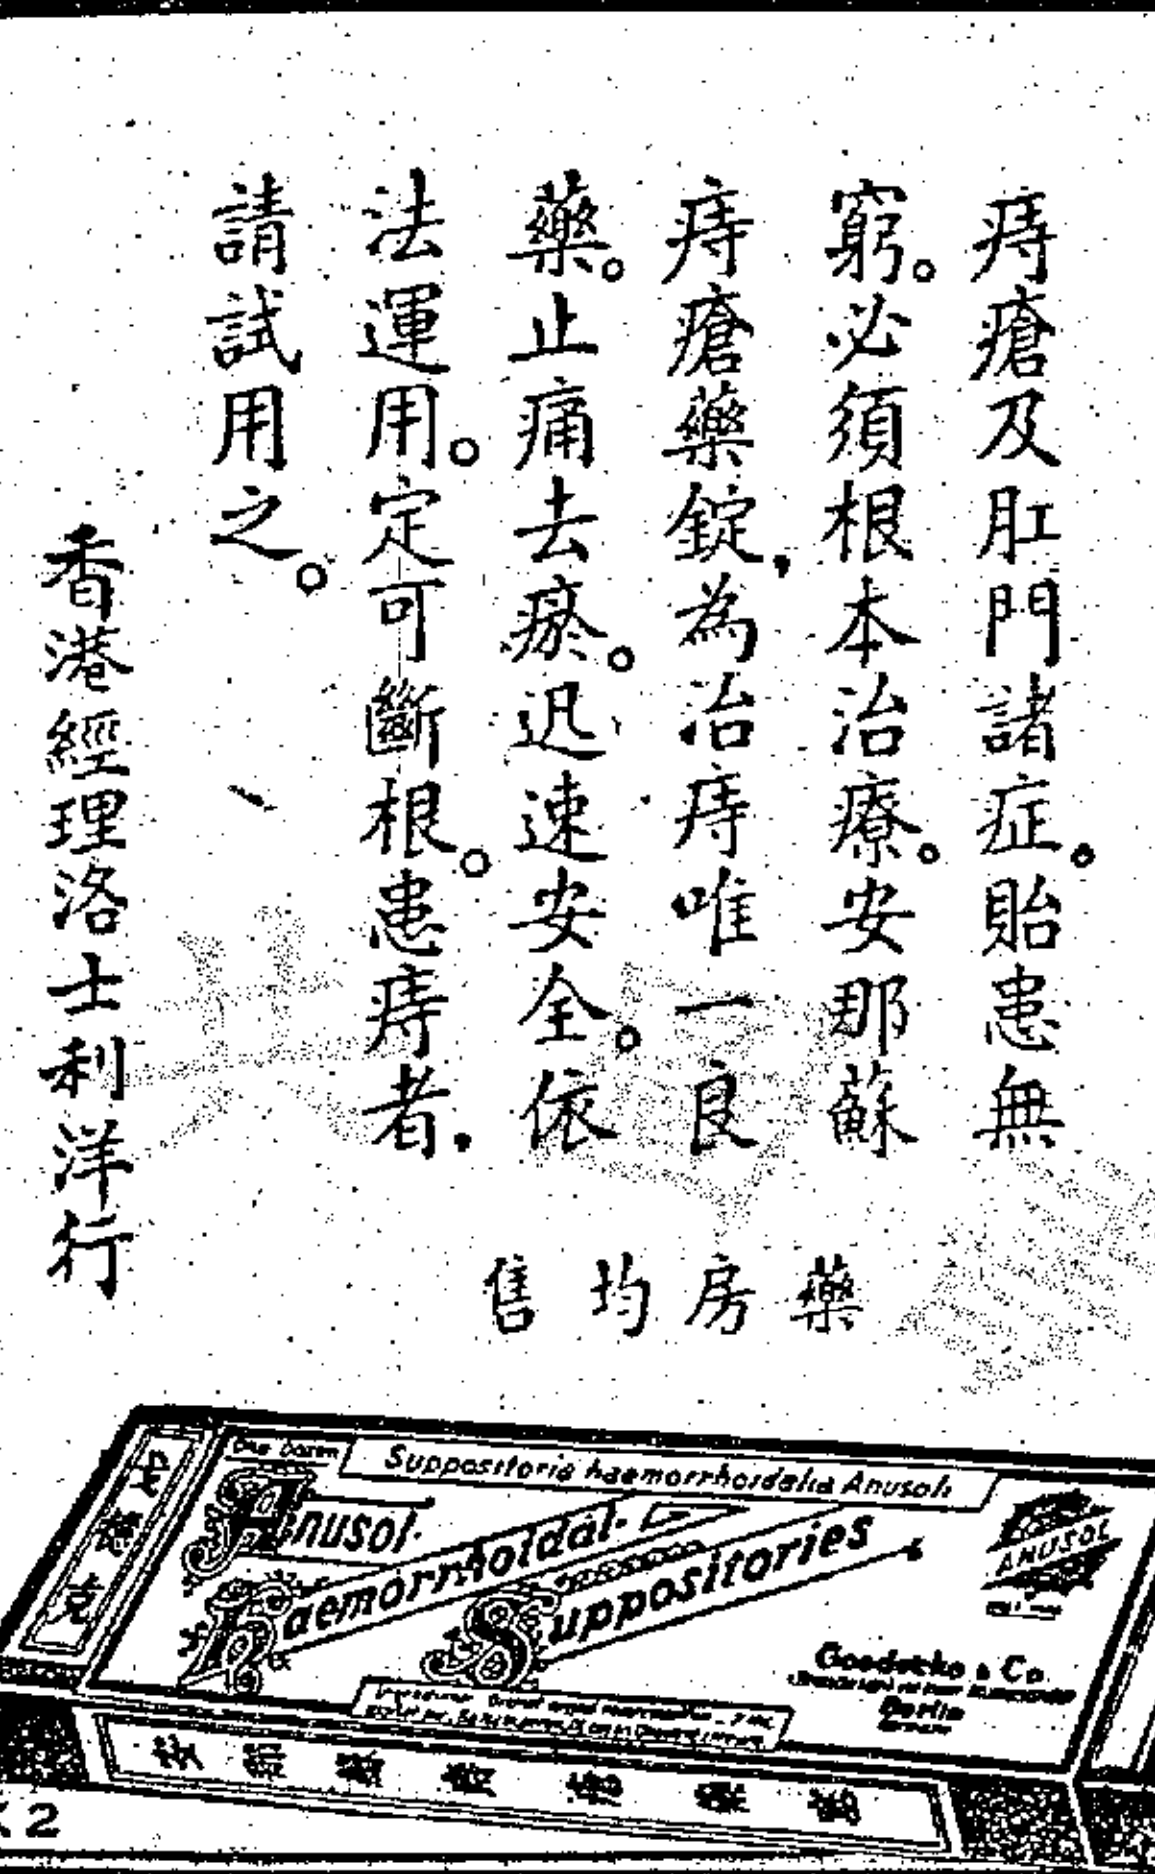 痔瘡及肛門諸症。貽患無
窮。必須根本治療。安那蘇
痔瘡藥錠，為治痔唯一良
藥。止痛去瘀。迅速安全。依
法運用。定可斷根。患痔者，
請試用之。
香港經理洛士利洋行
藥房均售
One Dozen
Suppositoria haemorrhoidalia Anusoli
Anusol-
Haemorrhoidal-
Suppositories
ANUSOL
Goedecke & Co.
Berlin
2